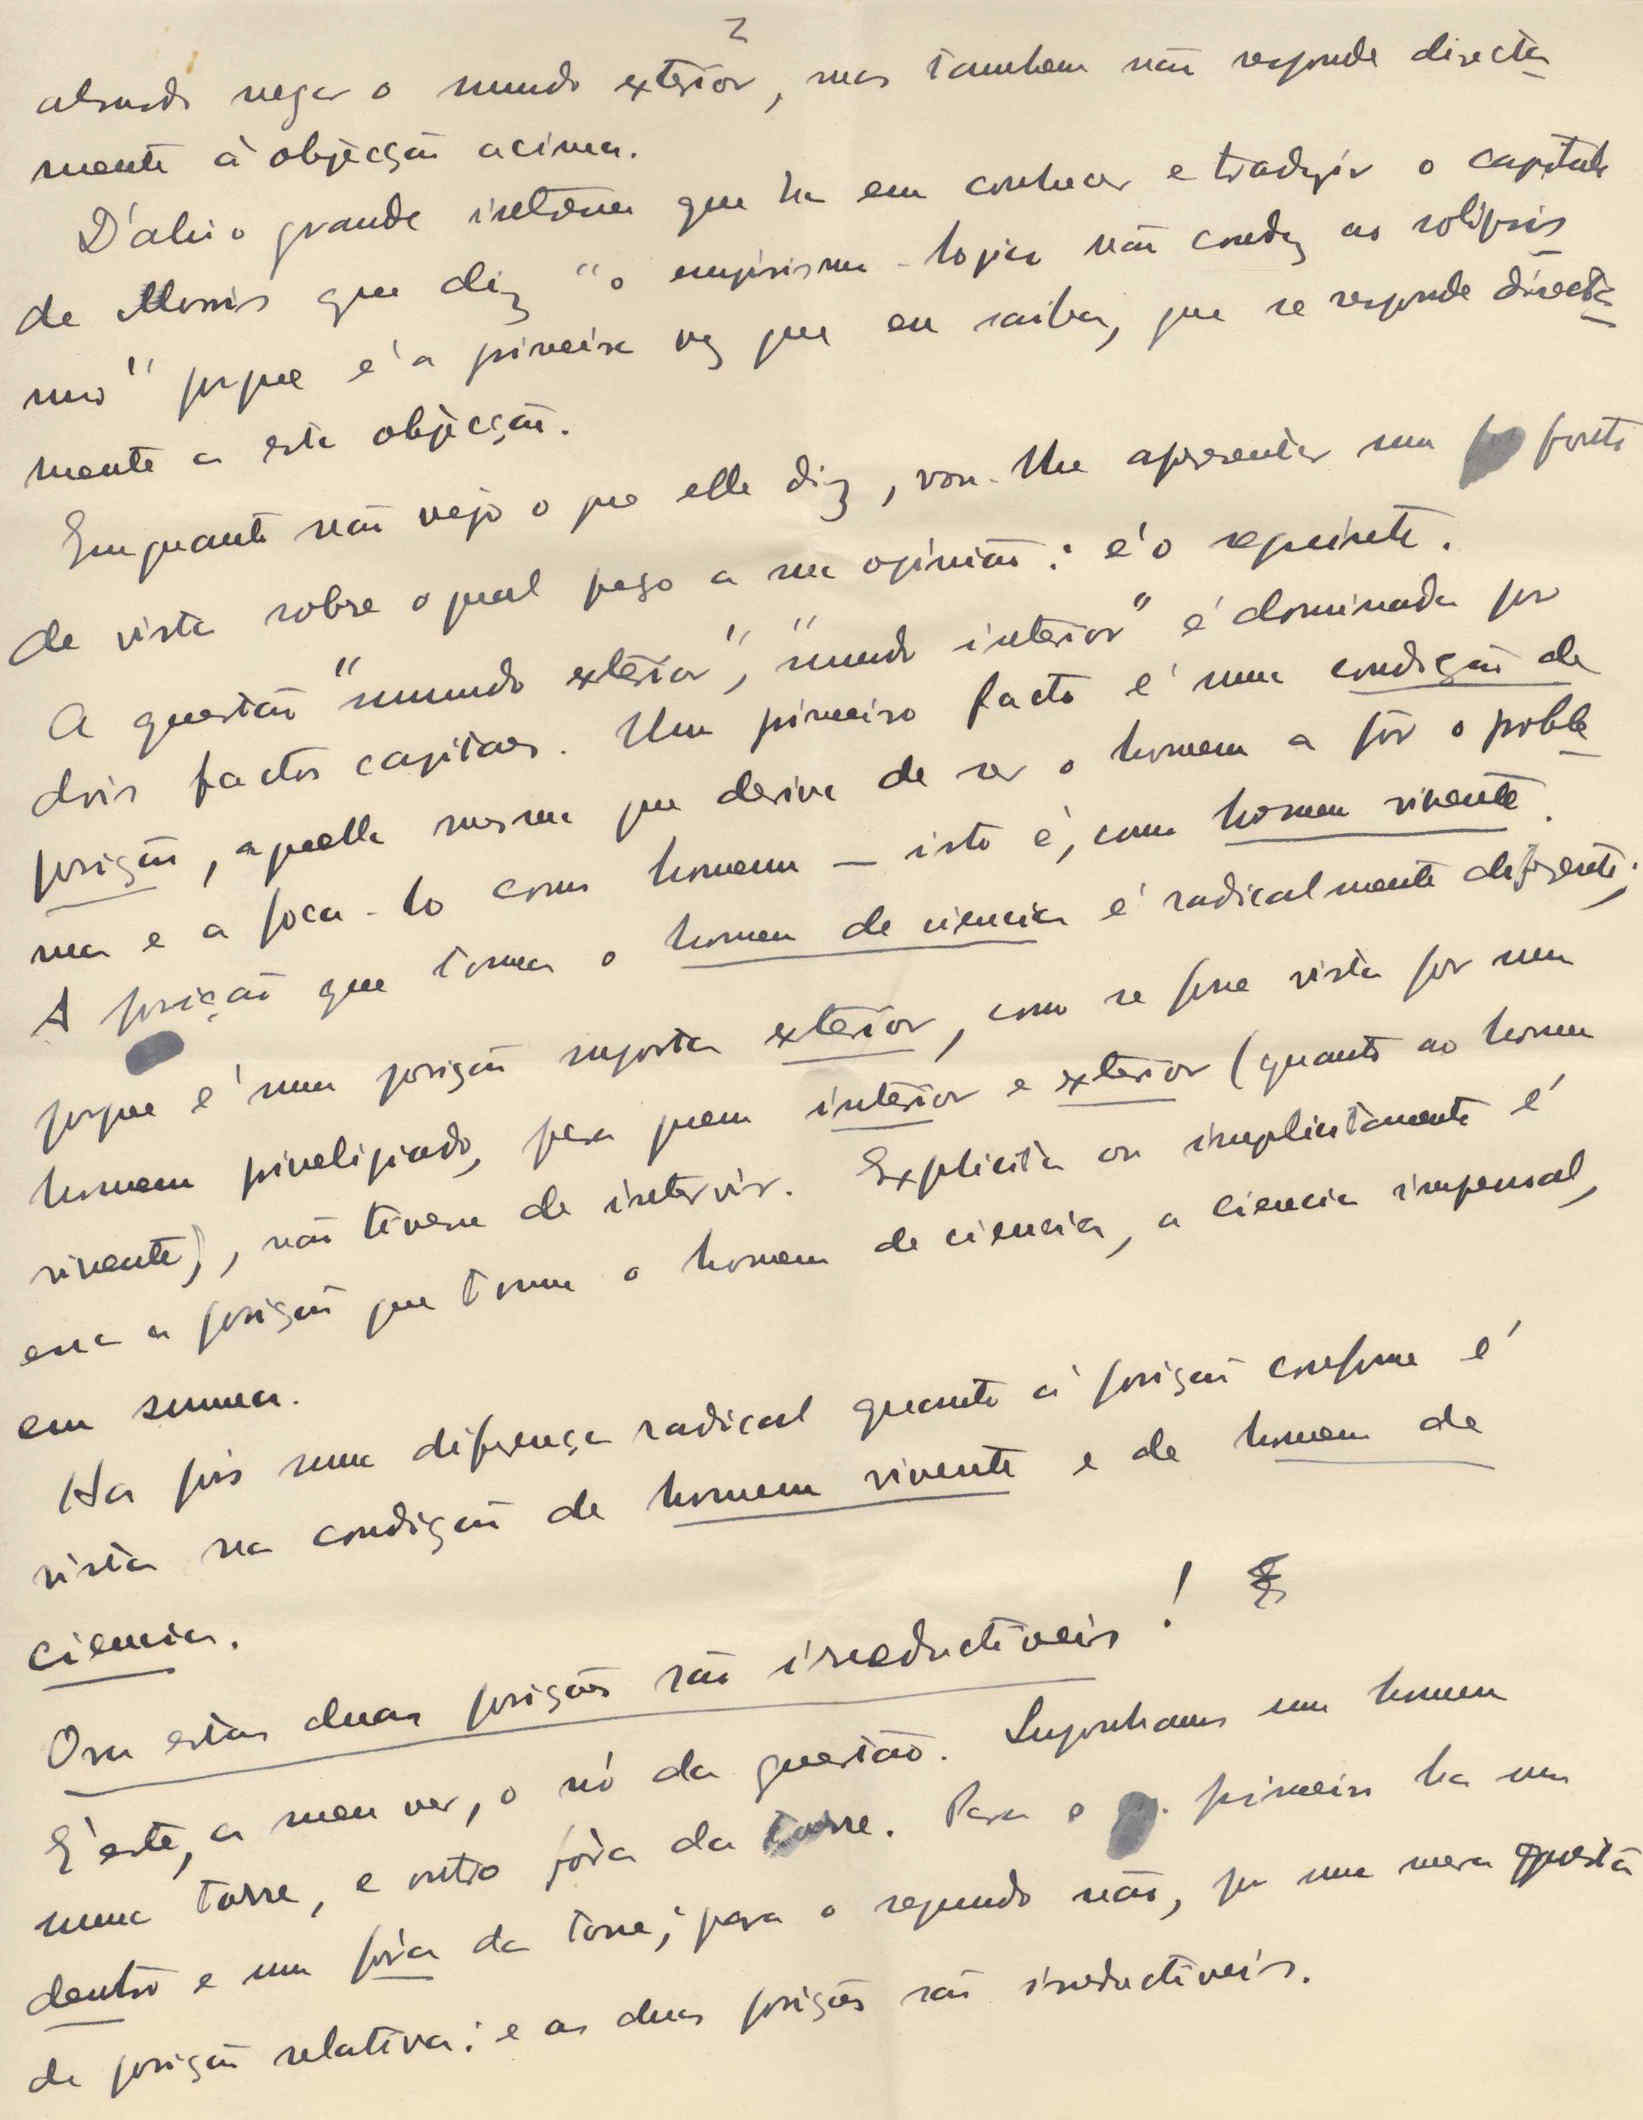 2
absurdo negar o mundo exterior, mas tambem não responde directa-
mente á objecção acima.
D'ahi o grande interesse que ha em conhecer e traduzir o capitulo
de Morris que diz "o empirismo-logico não conduz ao solipsis-
mo" porque é a primeira vez que eu saiba, que se responde directa-
mente a esta objecção.
Emquanto não vejo o que elle diz, vou-lhe apresentar um ponto
de vista sobre o qual peço a sua opinião: é o seguinte.
A questão "mundo exterior", "mundo interior" é dominada por
dois factos capitaes. Um primeiro facto é uma condição de
posição, aquella mesma que deriva de ser o homem a pôr o proble-
ma e a foca-lo como homem — isto é, como homem vivente.
A posição que toma o homem de ciencia é radicalmente diferente;
porque é uma posição suposta exterior, como se fosse vista por um
homem priveligiado, para quem interior e exterior (quanto ao homem
vivente), não tivesse de intervir. Explicita ou implicitamente é
essa a posição que toma o homem de ciencia, a ciencia impessoal,
em summa.
Ha pois uma diferença radical quanto á posição conforme é
vista na condição de homem vivente e de homem de
ciencia.
Ora estas duas posições são irreductiveis!
É este, a meu ver, o nó da questão. Suponhamos um homem
numa torre, e outro fóra da torre. Para o primeiro ha um
dentro e um fóra da torre; para o segundo não, por uma mera questão
de posição relativa: e as duas posições são irreductiveis.